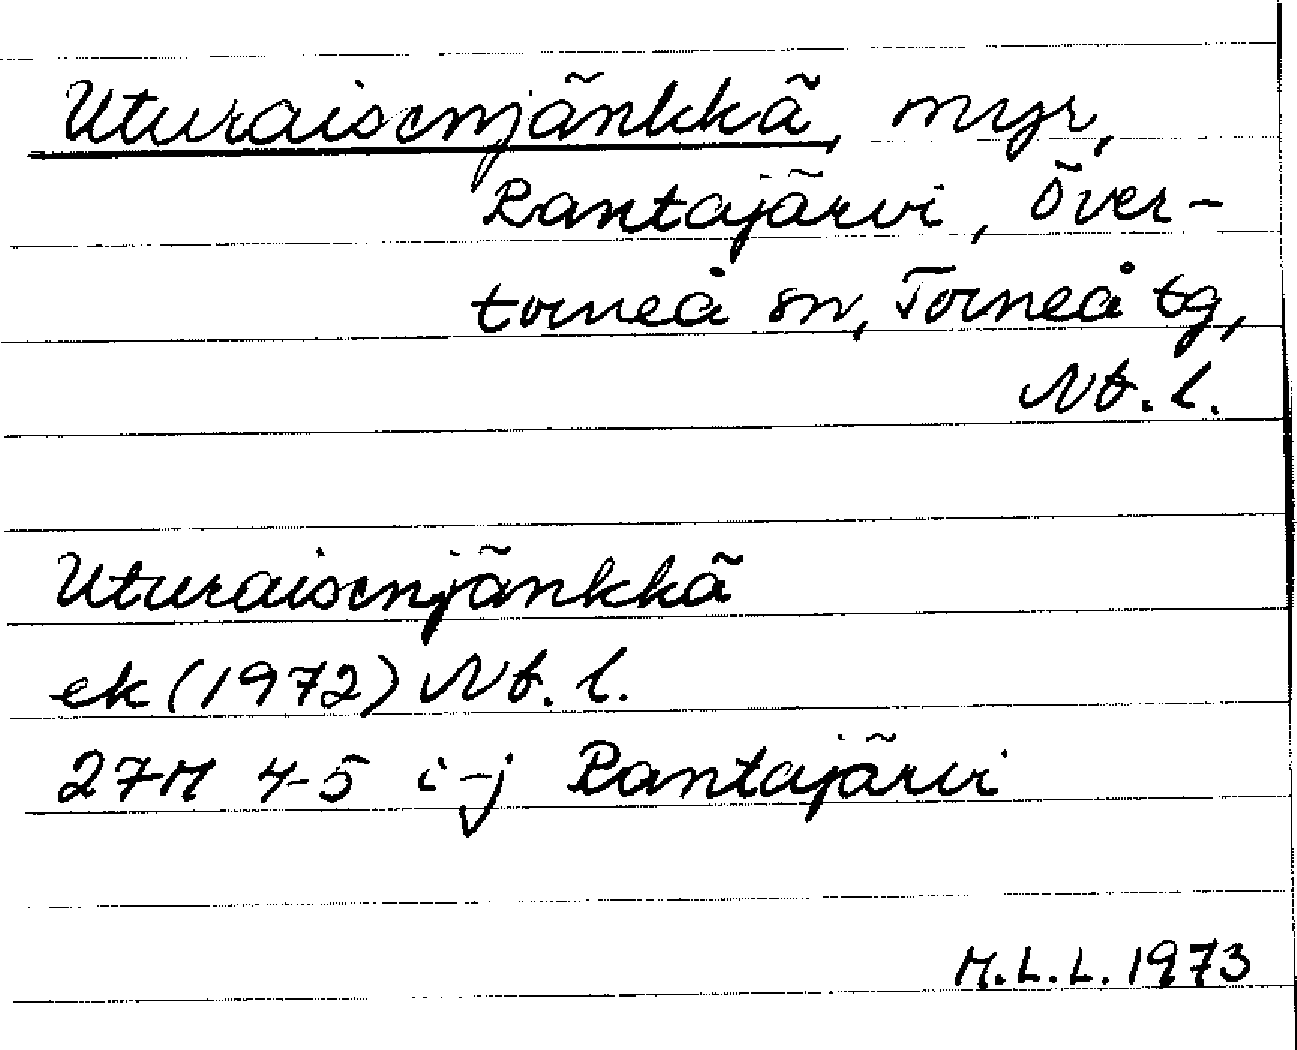 Uturaisenjänkkä, myr,
Rantajärvi, Över-
torneå sn, Torneå tg,
Nb. l.
Uturaisenjänkkä
ek (1972) Nb. l.
27M 4-5 i-j Rantajärvi
M.L.L. 1973